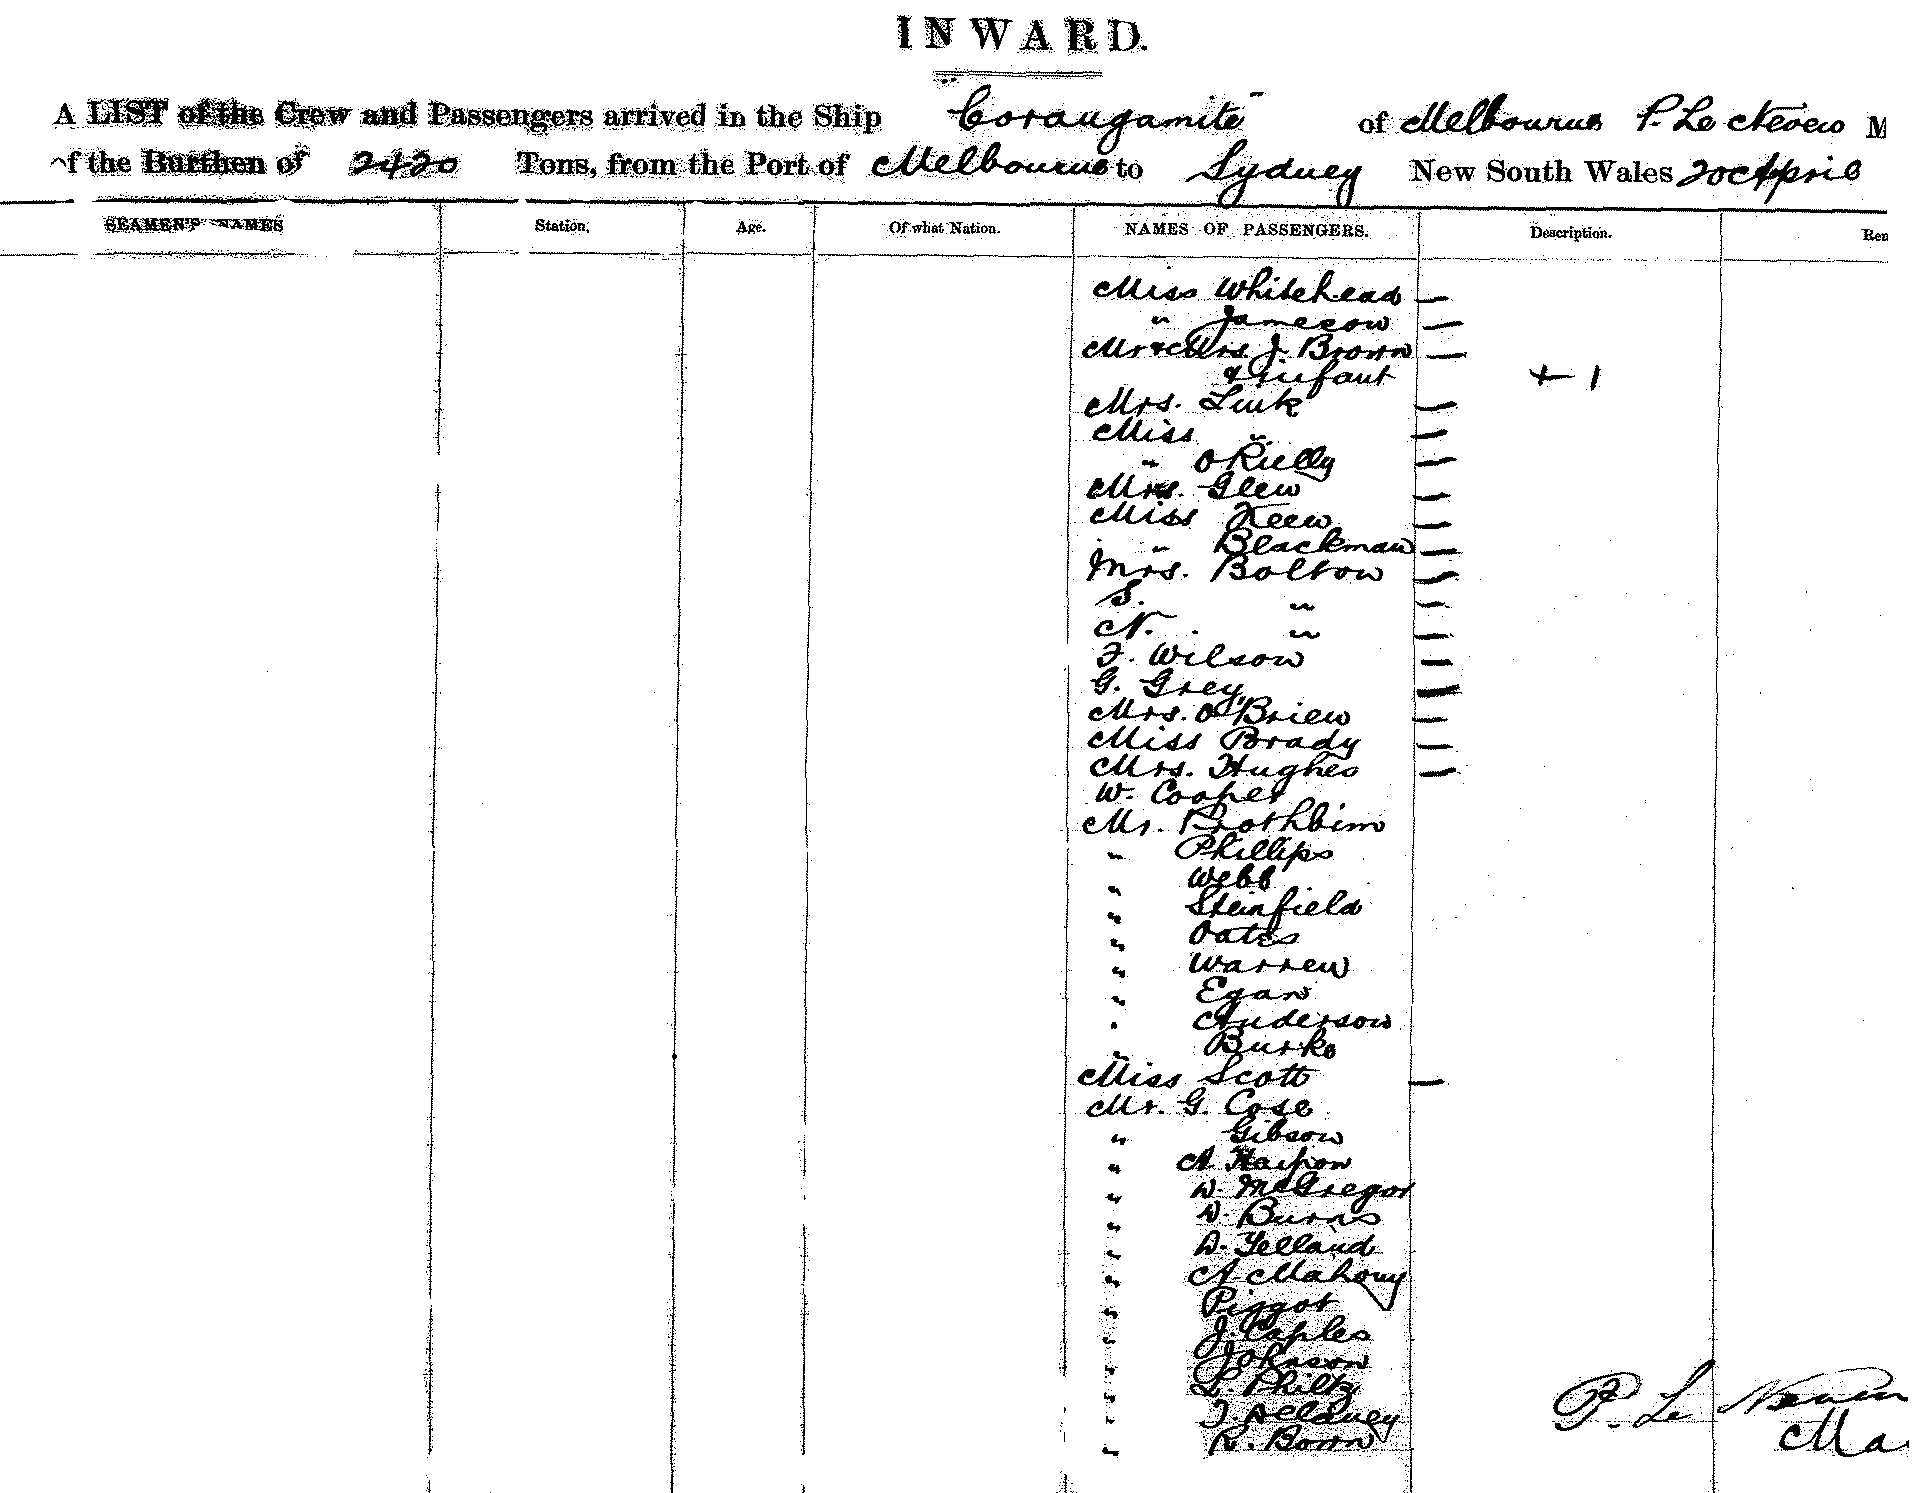 INWARD.
A LIST of the Crew and Passengers arrived in the Ship Corangamite of Melbourne P. Le Neveu M
f the Burthen of 2420 Tons, from the Port of Melbourne to Sydney New South Wales 20 April
SEAMEN'S NAMES Station. Age. Of what Nation. NAMES OF PASSENGERS. Description. Rem
Miss Whitehead —
" Jameson —
Mr & Mrs. J. Brown —
& infant + 1
Mrs. Link —
Miss " —
" O Rielly —
Mrs. Glew —
Miss Keew —
" Blackman —
Mrs. Bolton —
S. " —
N. " —
F. Wilson —
G. Grey —
Mrs. O'Brien —
Miss Brady —
Mrs. Hughes —
W. Cooper
Mr.
" Phillips
" Webb
" Steinfield
" Oates
" Warren
" Egan
" Anderson
" Burke
Miss Scott —
Mr. G. Cose
" Gibson
" A
" W. McGregor
" W. Burns
" D. Yelland
" A Mahony
" Piggot
" J. Caples
" Johnson
" L. Philtz
" J. Delaney
" R. Born
P. Le
Mas